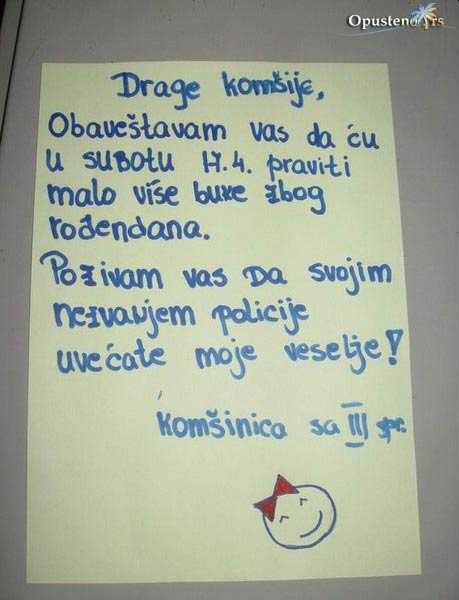 Opusteno.rs
Drage komšije,
Obaveštavam vas da ću
u subotu 17.4. praviti
malo više buke zbog
rođendana.
Pozivam vas da svojim
nezvanjem policije
uvećate moje veselje!
Komšinica sa III spr.